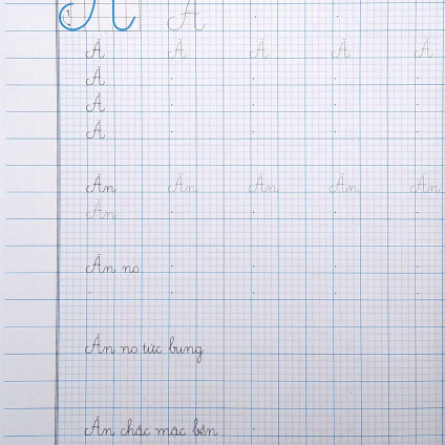 Ă Ă Ă Ă Ă
Ă
Ă
Ă
Ăn Ăn Ăn Ăn Ăn
Ăn
Ăn no
Ăn no tức bụng
Ăn chắc mặc bền